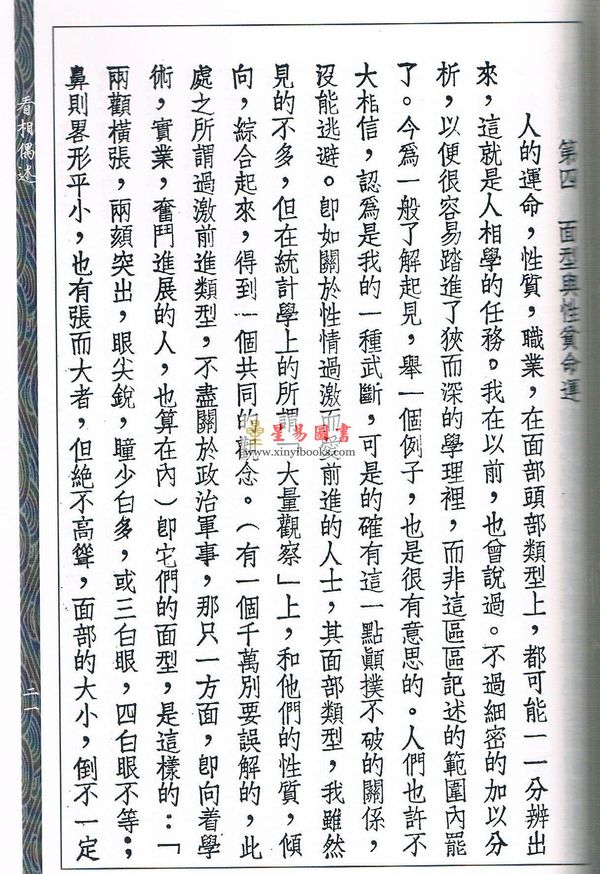 第四　面型與性質命運
人的運命，性質，職業，在面部頭部類型上，都可能一一分辨出
來，這就是人相學的任務。我在以前，也曾說過。不過細密的加以分
析，以便很容易踏進了狹而深的學理裡，而非這區區記述的範圍內罷
了。今爲一般了解起見，舉一個例子，也是很有意思的。人們也許不
大相信，認爲是我的一種武斷，可是的確有這一點顚撲不破的關係，
沒能逃避。卽如關於性情過激而前進的人士，其面部類型，我雖然
見的不多，但在統計學上的所謂「大量觀察」上，和他們的性質，傾
向，綜合起來，得到一個共同的觀念。（有一個千萬別要誤解的，此
處之所謂過激前進類型，不盡關於政治軍事，那只一方面，卽向着學
術，實業，奮鬥進展的人，也算在內）卽它們的面型，是這樣的：「
兩顴橫張，兩頦突出，眼尖銳，瞳少白多，或三白眼，四白眼不等；
鼻則畧形平小，也有張而大者，但絕不高聳，面部的大小，倒不一定
看相偶述
二一
星易圖書
www.xinyibooks.com